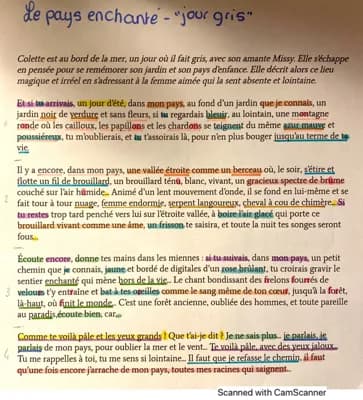 Le pays enchanté - "jour gris"
Colette est au bord de la mer, un jour où il fait gris, avec son amante Missy. Elle s'échappe
en pensée pour se remémorer son jardin et son pays d'enfance. Elle décrit alors ce lieu
magique et irréel en s'adressant à la femme aimée qui la sent absente et lointaine.
Et si tu arrivais, un jour d'été, dans mon pays, au fond d'un jardin que je connais, un
jardin noir de verdure et sans fleurs, si tu regardais bleuir, au lointain, une montagne
ronde où les cailloux, les papillons et les chardons se teignent du même azur mauve et
poussiéreux, tu m'oublierais, et tu t'assoirais là, pour n'en plus bouger jusqu'au terme de ta
vie.
Il y a encore, dans mon pays, une vallée étroite comme un berceau où, le soir, s'étire et
flotte un fil de brouillard, un brouillard ténu, blanc, vivant, un gracieux spectre de brume
2 couché sur l'air humide.. Animé d'un lent mouvement d'onde, il se fond en lui-même et se
fait tour à tour nuage, femme endormie, serpent langoureux, cheval à cou de chimère... Si
tu restes trop tard penché vers lui sur l'étroite vallée, à boire l'air glacé qui porte ce
brouillard vivant comme une âme, un frisson te saisira, et toute la nuit tes songes seront
fous...
Écoute encore, donne tes mains dans les miennes : si tu suivais, dans mon pays, un petit
chemin que je connais, jaune et bordé de digitales d'un rose brûlant, tu croirais gravir le
sentier enchanté qui mène hors de la vie... Le chant bondissant des frelons fourrés de
3 velours t'y entraîne et bat à tes oreilles comme le sang même de ton cœur, jusqu'à la forêt,
là-haut, où finit le monde... C'est une forêt ancienne, oubliée des hommes, et toute pareille
au paradis, écoute bien, car...
Comme te voilà pâle et les yeux grands ! Que t'ai-je dit ? Je ne sais plus.. je parlais, je
4 parlais de mon pays, pour oublier la mer et le vent... Te voilà pâle, avec des yeux jaloux..
Tu me rappelles à toi, tu me sens si lointaine... Il faut que je refasse le chemin, il faut
qu'une fois encore j'arrache de mon pays, toutes mes racines qui saignent...
Scanned with CamScanner